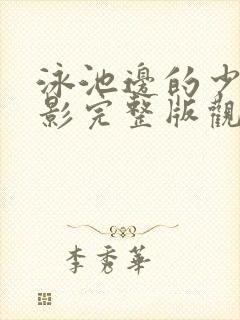 泳池邊的少
影完整版觀
李秀華